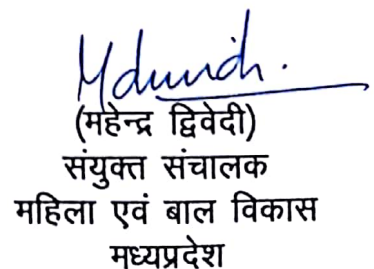 (महेन्द्र द्विवेदी)
संयुक्त संचालक
महिला एवं बाल विकास
मध्यप्रदेश